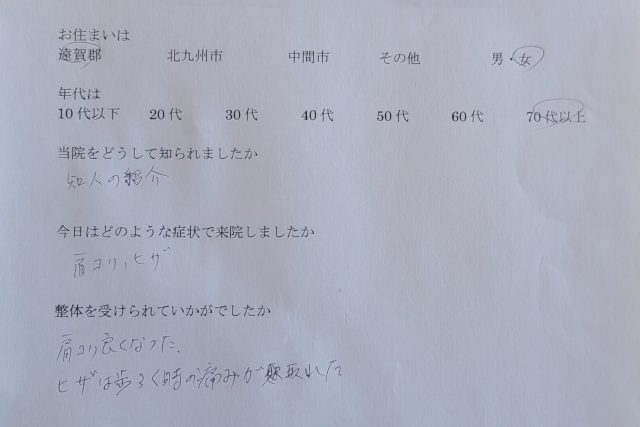 お住まいは
遠賀郡 北九州市 中間市 その他 男・女
年代は
10代以下 20代 30代 40代 50代 60代 70代以上
当院をどうして知られましたか
知人の紹介
今日はどのような症状で来院しましたか
肩コリ、ヒザ
整体を受けられていかがでしたか
肩コリ良くなった、
ヒザは歩るく時の痛みが取れた